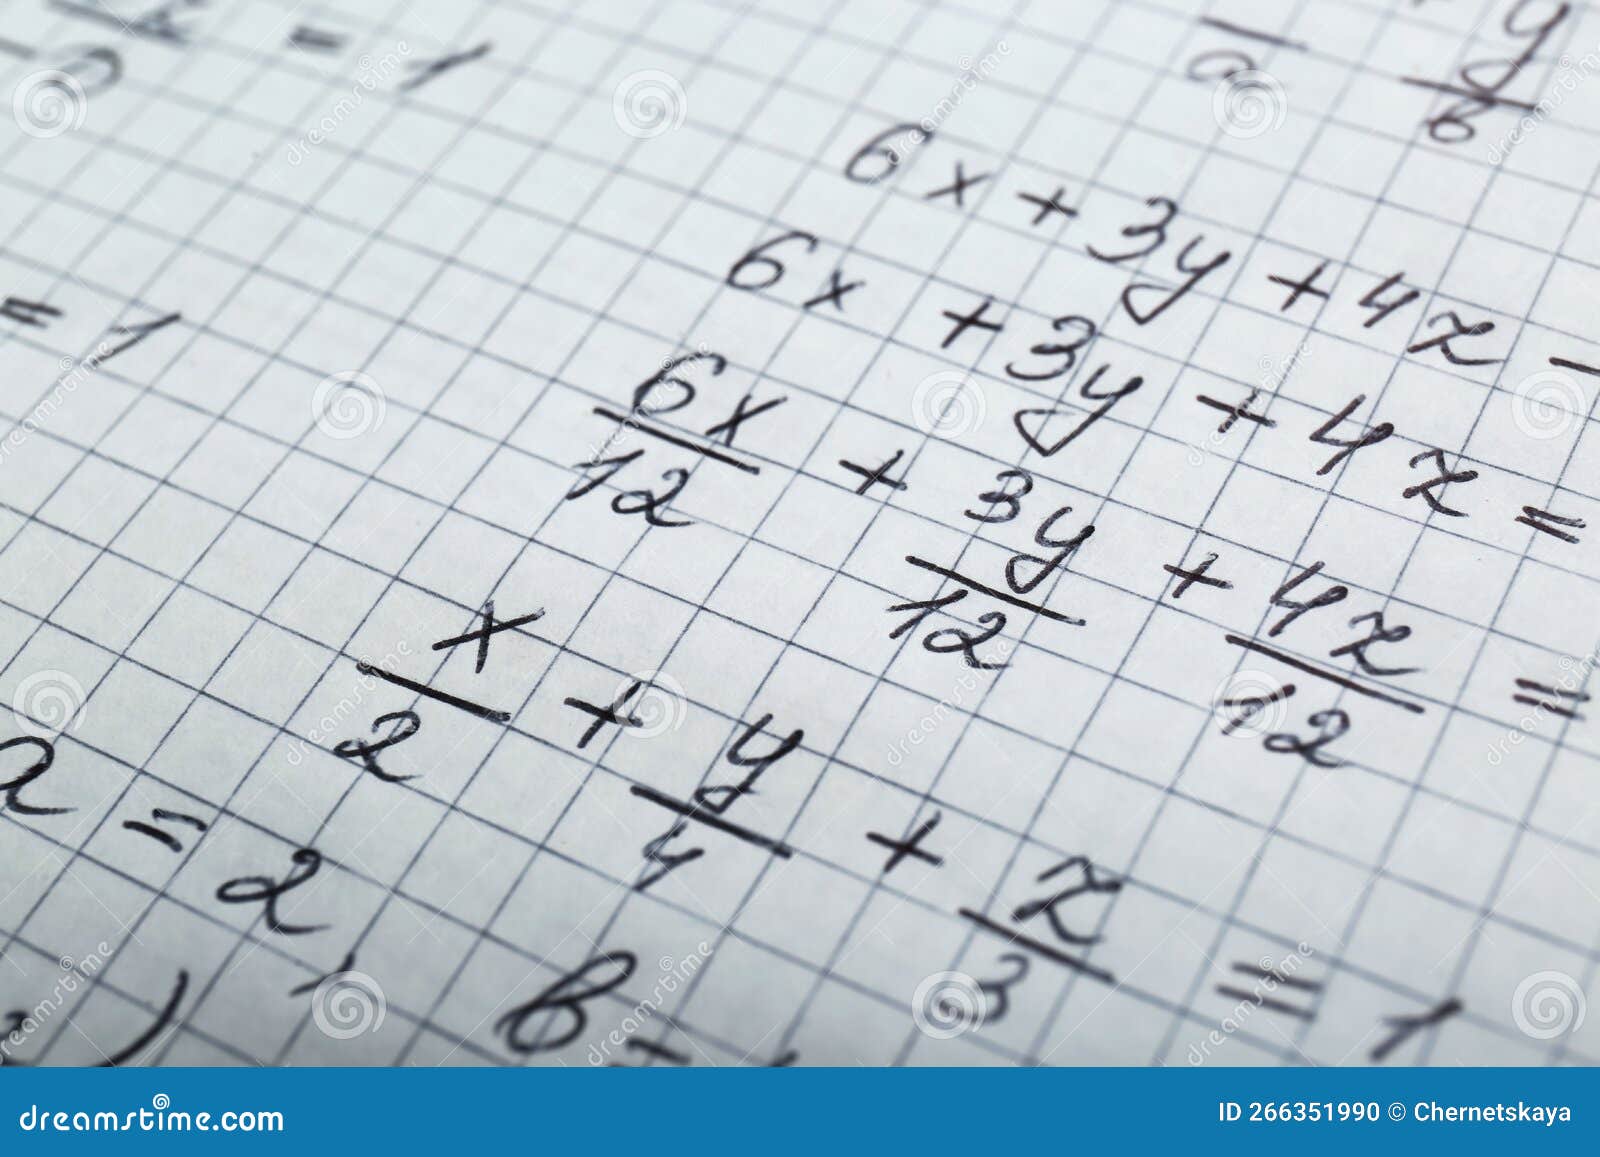 = 1
a
y
b
6x + 3y + 4z -
= 1
6x + 3y + 4z =
6x/12 + 3y/12 + 4z/12 =
x/2 + y/4 + z/3 = 1
a = 2, b =
)
dreamstime.com
ID 266351990 © Chernetskaya